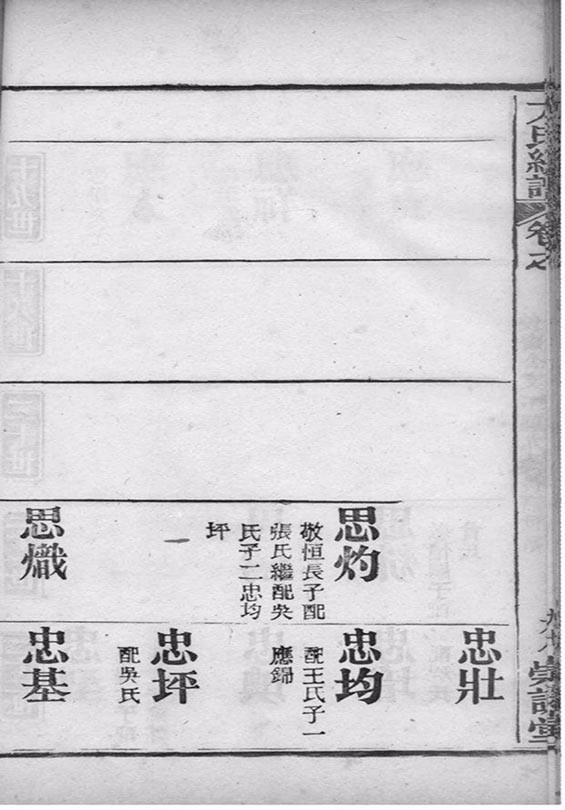 氏續譜
卷七
崇譜堂
忠壯
思灼
敬恒長子配
張氏繼配吳
氏子二忠均
坪
忠均
配王氏子一
應錦
忠坪
配吳氏
思熾
忠基